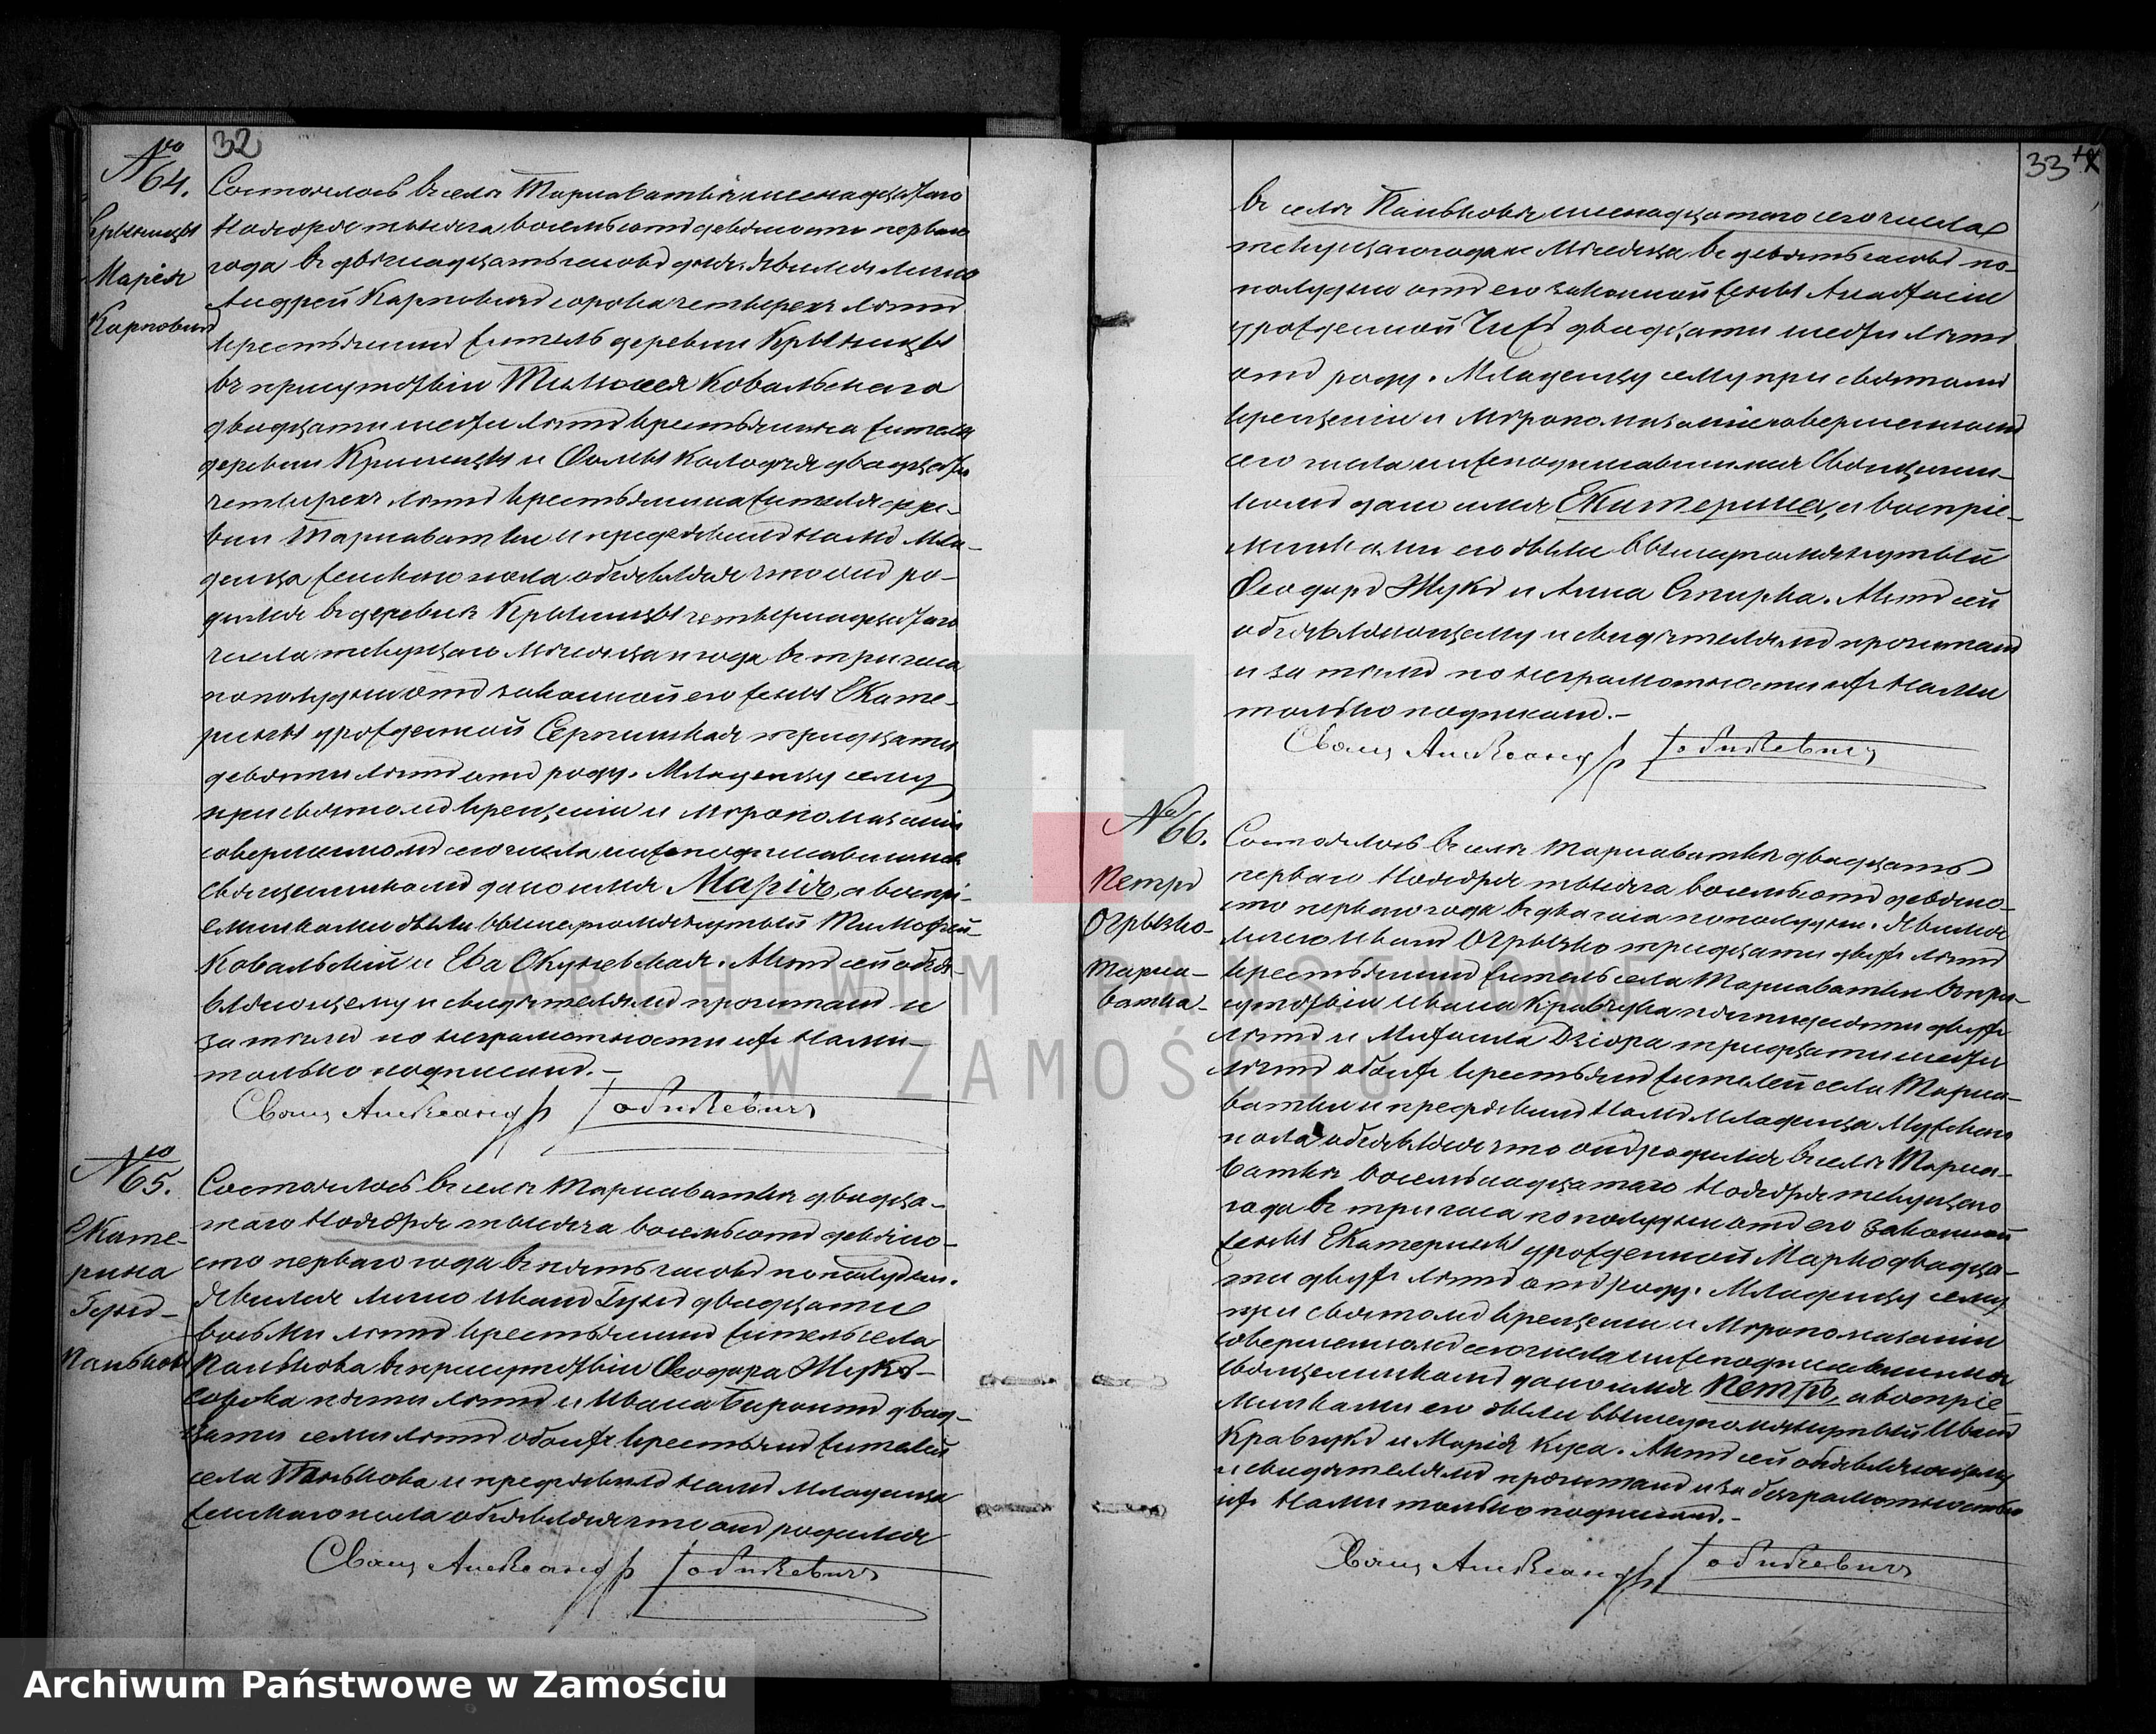 32
№ 64.
Крыницы
Марія
Карповичъ
Состоялось въ селѣ Тарноваткѣ шестнадцатаго
Ноября тысяча восемьсотъ девяносто перваго
года въ двѣнадцать часовъ дня. Явился лично
Андрей Карповичъ сорока четырехъ лѣтъ
крестьянинъ житель деревни Крыницы
въ присутствіи Тимофея Ковальскаго
двадцати шести лѣтъ крестьянина жителя
деревни Крыницы и Ѳомы Колодзя двадцати
четырехъ лѣтъ крестьянина жителя дере-
вни Тарноватки и предъявилъ намъ Мла-
денца женскаго пола, объявляя что онъ ро-
дился въ деревнѣ Крыницы четырнадцатаго
числа текущаго мѣсяца и года въ три часа
пополудни отъ законной его жены Екате-
рины урожденной тридцати
девяти лѣтъ отъ роду. Младенцу сему
при святомъ крещеніи и Мѵропомазаніи
совершенномъ сего числа нижеподписавшимся
священникомъ дано имя Марія, а воспрі-
емниками были вышеупомянутый Тимофей
Ковальскій и Ева Окуневская. Актъ сей объя-
вляющему и свидѣтелямъ прочитанъ и
затѣмъ по неграмотности ихъ Нами
только подписанъ.–
Свящ Александръ
№ 65.
Екате-
рина
Гукъ–
Паньковъ
Состоялось въ селѣ Тарноваткѣ двадца-
таго Ноября тысяча восемьсотъ девяно-
сто перваго года въ пять часовъ пополудни.
Явился лично Иванъ Гукъ двадцати
восьми лѣтъ крестьянинъ житель села
Панькова въ присутствіи Ѳеодора Жукъ–
сорока пяти лѣтъ и Ивана двад-
цати семи лѣтъ обоихъ крестьянъ жителей
села Панькова и предъявилъ намъ Младенца
женскаго пола объявляя что онъ родился
Свящ Александръ
33
въ селѣ Паньковѣ шестнадцатаго сего числа
текущаго года и Мѣсяца въ девять часовъ по-
полудни отъ его законной жены Анастасіи
урожденной двадцати шести лѣтъ
отъ роду. Младенцу сему при святомъ
крещеніи и Мѵропомазаніи совершенномъ
сего числа нижеподписавшимся Священни-
комъ дано имя Екатерина, и воспріе-
мниками его были Вышеупомянутый
Ѳеодоръ Жукъ и Анна . Актъ сей
объявляющему и свидѣтелямъ прочитанъ
и затѣмъ по неграмотности ихъ Нами
только подписанъ.–
Свящ Александръ
№ 66.
Петръ
Огрызко–
Тарно-
ватка–
Состоялось въ селѣ Тарноваткѣ двадцать
перваго Ноября тысяча восемьсотъ девяно-
сто перваго года въ два часа пополудни. Явился
лично Иванъ Огрызко тридцати двухъ лѣтъ
крестьянинъ житель села Тарноватки въ при-
сутствіи Ивана Кравчука пятидесяти двухъ
лѣтъ и тридцати шести
лѣтъ обоихъ крестьянъ жителей села Тарно-
ватки и предъявилъ Намъ Младенца Мужскаго
пола объявляя что онъ родился въ селѣ Тарно-
ваткѣ восемьнадцатаго Ноября текущаго
года въ три часа пополудни отъ его Законной
жены Екатерины урожденной двадца-
ти двухъ лѣтъ отъ роду. Младенцу сему
при святомъ крещеніи и Мѵропомазаніи
совершенномъ сего числа нижеподписавшимся
священникомъ дано имя Петръ, а воспріе-
мниками его были вышеупомянутый Иванъ
Кравчукъ и Марія . Актъ сей объявляющему
и свидѣтелямъ прочитанъ и за безграмотностью
ихъ Нами только подписанъ.–
Свящ Александръ
ARCHIWUM PAŃSTWOWE
W ZAMOŚCIU
Archiwum Państwowe w Zamościu